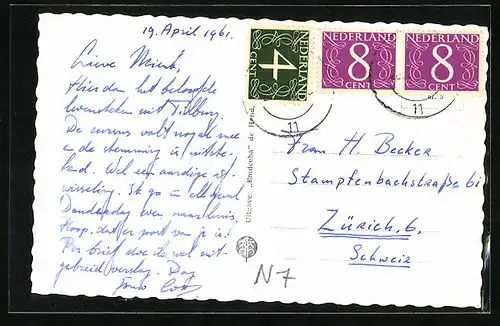 19. April 1961.
Lieve Mient,
Hier dan het beloofde
levensteken uit Tilburg.
De cursus valt nogal mee
en de stemming is uitste-
kend. Wel een aardige af-
wisseling. Ik ga in elk geval
Donderdag even naar huis.
Hoop, dat er post van je is!
Per brief doe ik wel uit-
gebreid verslag. Dag
jouw
NEDERLAND
4
CENT
NEDERLAND
8
CENT
NEDERLAND
8
CENT
11
11
Uitgave:
Frau H. Becker
Stampfenbachstraße 61
Zürich, 6.
Schweiz
N7